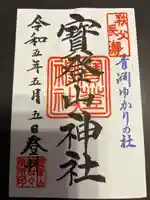 秩父
長瀞
青淵ゆかりの社
寳登山神社
令和五年五月五日登拝